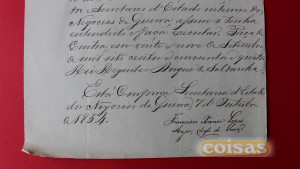 ta Secretario d'Estado interino dos
Negocios da Guerra assim o tenha
entendido e faça executar. Paço de
Cintra em vinte e nove de Setembro
de mil oito centos cincoenta e quatro
Rei Regente = Duque de Saldanha
Está Conforme. Secretaria d'Estado
dos Negocios da Guerra, 7 d'Outubro
de 1854.
Francisco Lopes
Major, Chefe da
coisas